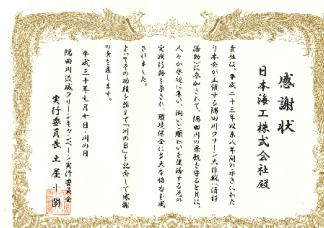 感謝状
日本海工株式会社殿
貴社は、平成二十三年以来八年間の永きにわた
り本会が主催する隅田川クリーン大作戦(清掃
活動)に参加されて、隅田川の景観を守ると共に、
人々が水辺に集い、憩い、賑わいを復活する為の
実践行動を示され、環境保全に多大な協力を成
されました。
よってその功績を讃えて「川の日」を記念して感謝
の意を表します。
平成三十年七月七日 川の日
隅田川流域クリーンキャンペーン実行委員会
実行委員長 土屋十圀